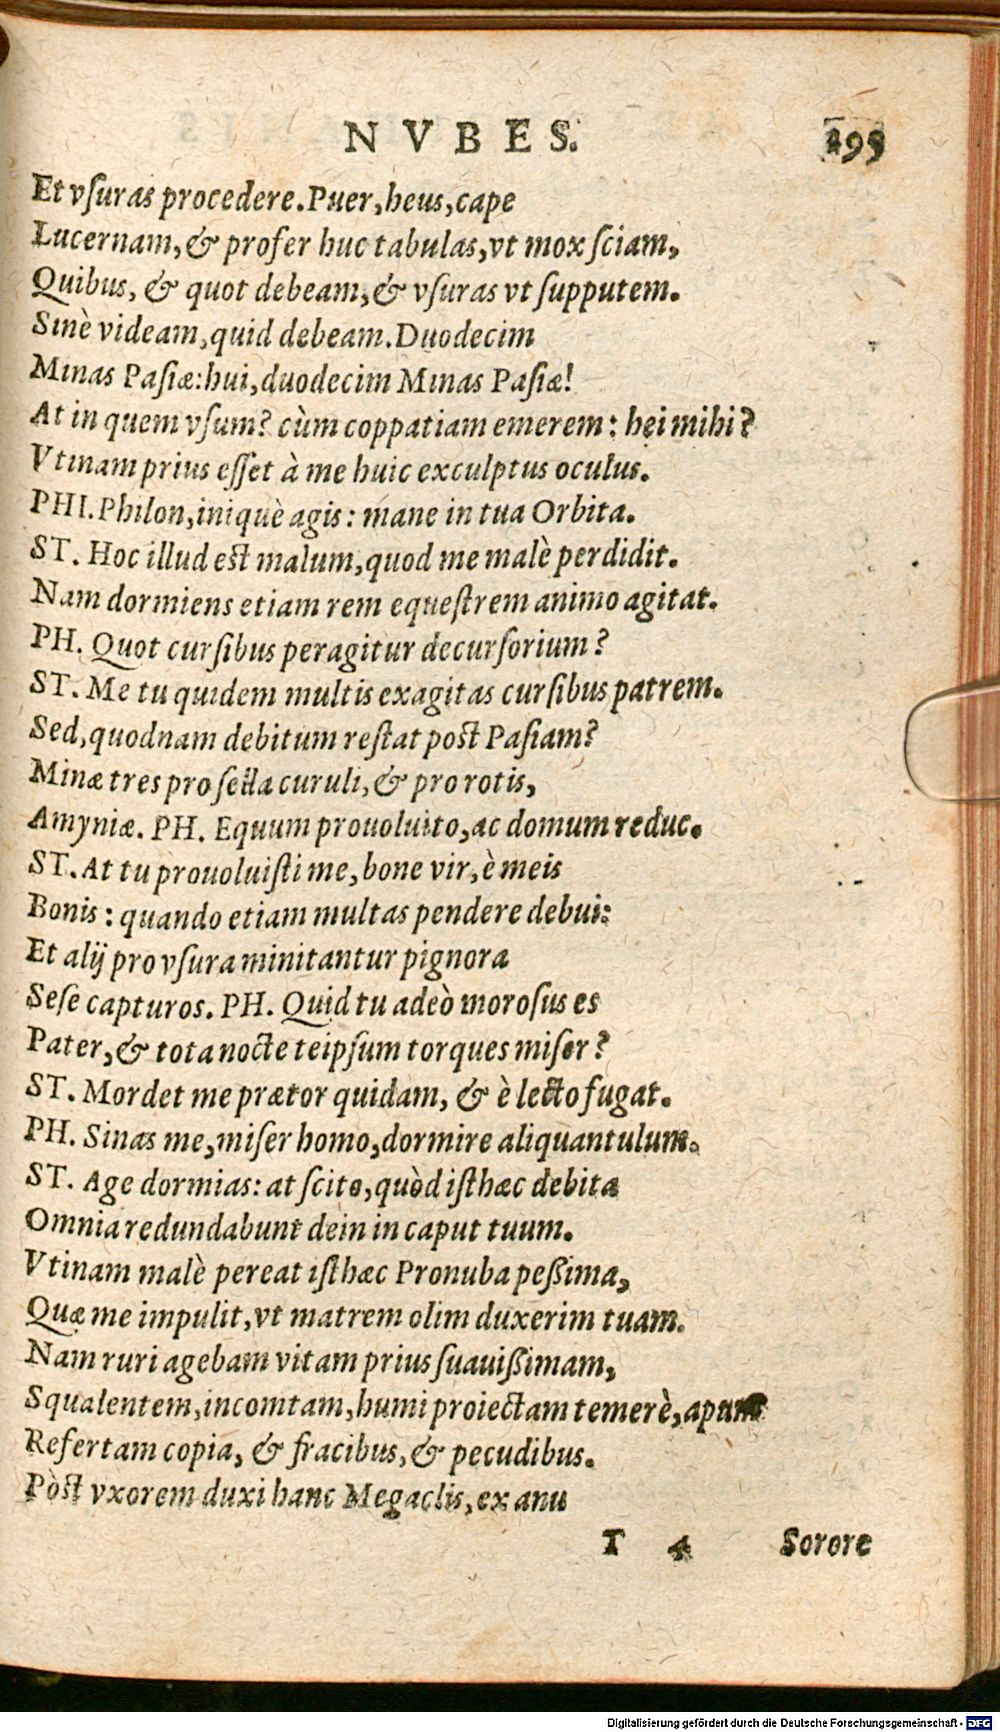 NVBES. 295
Et vſuras procedere. Puer, heus, cape
Lucernam, & profer huc tabulas, vt mox ſciam,
Quibus, & quot debeam, & vſuras vt ſupputem.
Sinè videam, quid debeam. Duodecim
Minas Paſiæ: hui, duodecim Minas Paſiæ!
At in quem vſum? cùm coppatiam emerem: hei mihi?
Vtinam prius eſſet à me huic exculptus oculus.
PHI. Philon, iniquè agis: mane in tua Orbita.
ST. Hoc illud est malum, quod me malè perdidit.
Nam dormiens etiam rem equeſtrem animo agitat.
PH. Quot curſibus peragitur decurſorium?
ST. Me tu quidem multis exagitas curſibus patrem.
Sed, quodnam debitum reſtat post Paſiam?
Minæ tres pro ſella curuli, & pro rotis,
Amyniæ. PH. Equum prouoluito, ac domum reduc.
ST. At tu prouoluiſti me, bone vir, è meis
Bonis: quando etiam multas pendere debui:
Et alij pro vſura minitantur pignora
Seſe capturos. PH. Quid tu adeò moroſus es
Pater, & tota nocte teipſum torques miſer?
ST. Mordet me prætor quidam, & è lecto fugat.
PH. Sinas me, miſer homo, dormire aliquantulum.
ST. Age dormias: at ſcito, quòd iſthæc debita
Omnia redundabunt dein in caput tuum.
Vtinam malè pereat iſthæc Pronuba peßima,
Quæ me impulit, vt matrem olim duxerim tuam.
Nam ruri agebam vitam prius ſuauißimam,
Squalentem, incomtam, humi proiectam temerè, apum
Refertam copia, & fracibus, & pecudibus.
Pòst vxorem duxi hanc Megaclis, ex anu
T 4 Sorore
Digitalisierung gefördert durch die Deutsche Forschungsgemeinschaft - DFG